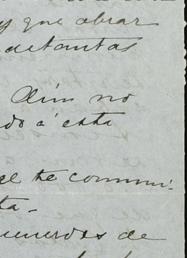 y que obrar
detantas
Aún no
do á este
el te communi-
ta.
cuerdos de